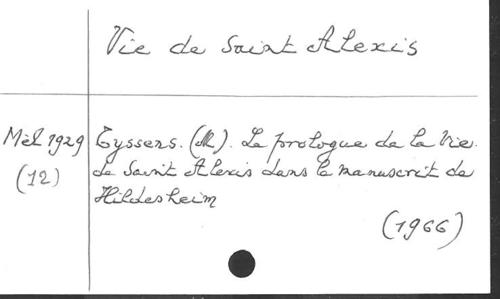 Vie de Saint Alexis
Mél 1929 Tyssens. (M). Le prologue de la Vie.
(12) de Saint Alexis dans le manuscrit de
Hildesheim
(1966)